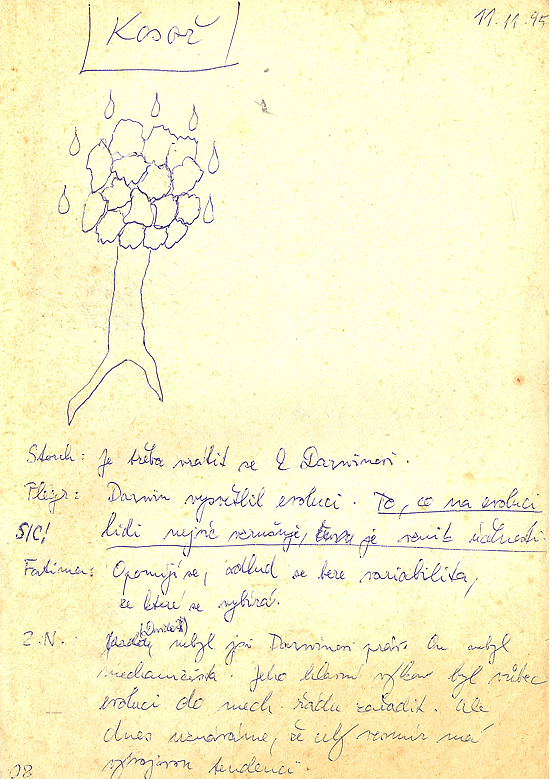 Kosař
11.11.95
Storch: Je třeba vrátit se k Darwinovi.
Flegr: Darwin vysvětlil evoluci. To, co na evoluci
SIC! lidi nejvíc vzrušuje, je vznik účelnosti.
Fatima: Opomíjí se, odkud se bere variabilita,
ze které se vybírá.
Z.N. nebyl jsi Darwinovi práv. On nebyl
mechanicista. Jeho hlavní výkon byl vůbec
evoluci do mech. řádu zařadit. Ale
dnes uznáváme, že celý vesmír má
vývojovou tendenci.